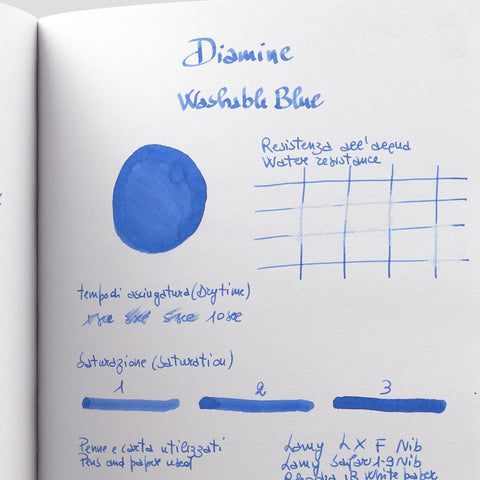 Diamine
Washable Blue
Resistenza all'acqua
Water resistance
tempo di asciugatura (Dry time)
5sec 10sec
Saturazione (Saturation)
1 2 3
Penne e carta utilizzati
Pens and paper used
Lamy LX F Nib
Lamy Safari 1.9 Nib
Rhodia 18 White paper